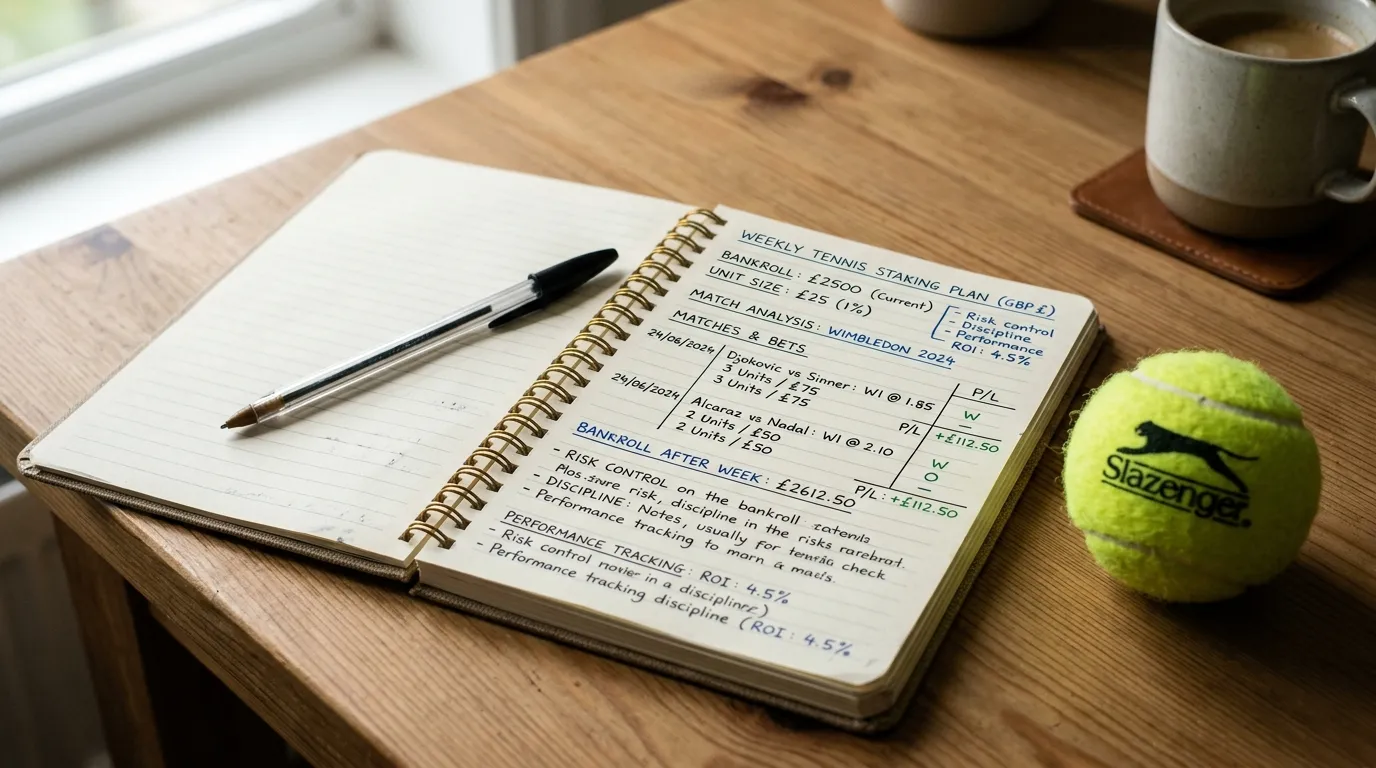 WEEKLY TENNIS STAKING PLAN (GBP £)
BANKROLL: £2500 (current)
UNIT SIZE: £25 (1%)
- Risk control
- Discipline
- Performance
ROI: 4.5%
MATCH ANALYSIS: WIMBLEDON 2024
MATCHES & BETS
P/L
24/06/2024
Djokovic vs Sinner: WI @ 1.85
3 Units / £75
3 Units / £75
W
–
P/L
+£112.50
24/06/2024
Alcaraz vs Nadal: WI @ 2.10
2 Units / £50
2 Units / £50
W
O
–
P/L: +£112.50
BANKROLL AFTER WEEK: £2612.50
- RISK CONTROL on the bankroll
risk, discipline in the risks
- DISCIPLINE: Notes, usually for check
- Performance tracking to a
PERFORMANCE TRACKING: ROI: 4.5%
- Risk control in a
- Performance tracking discipline (ROI: 4.5%
Slazenger